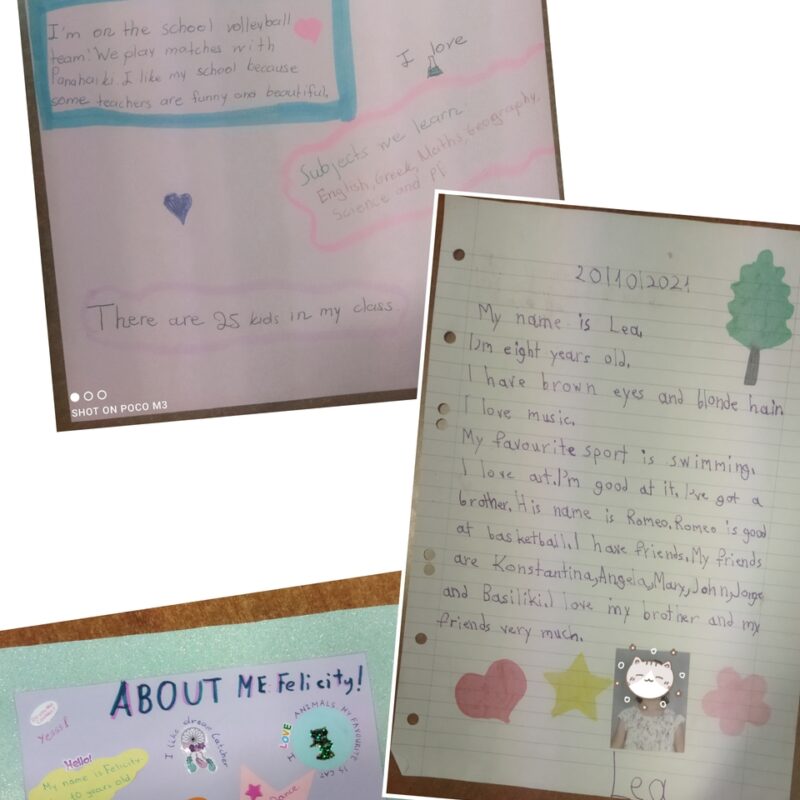 I'm on the school volleyball
team! We play matches with
Panahaiki. I like my school because
some teachers are funny and beautiful.
I love
Subjects we learn:
English, Greek, Maths, Geography,
Science and PE
There are 25 kids in my class.
SHOT ON POCO M3
20/10/2021
My name is Lea.
I'm eight years old.
I have brown eyes and blonde hair
I love music.
My favourite sport is swimming.
I love art. I'm good at it. I've got a
brother. His name is Romeo. Romeo is good
at basketball. I have friends. My friends
are Konstantina, Angela, Mary, John, Jorge
and Basiliki. I love my brother and my
friends very much.
Lea
ABOUT ME Felicity!
Yesss!
I like dream catcher
I LOVE ANIMALS MY FAVOURITE IS CAT
Hello!
My name is Felicity
10 years old
Dance